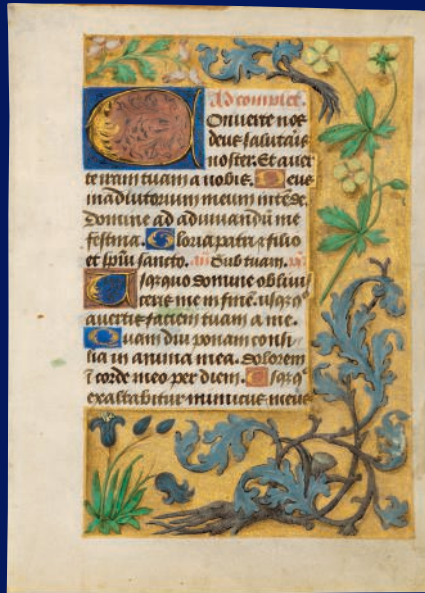 Ad complet.
Onuerte nos
deus salutaris
noster. Et auer
te iram tuam a nobis. Deus
in adiutorium meum intēde.
Domine ad adiuuandū me
festina. Gloria patri ⁊ filio
et spūi sancto. añ Sub tuam. ps
Usquequo domine obliui
sceris me in finē. usq̄q̊
auertis faciem tuam a me.
Quam diu ponam consi
lia in anima mea. dolorem
ī corde meo per diem. Usq̄q̊
exaltabitur inimicus meus